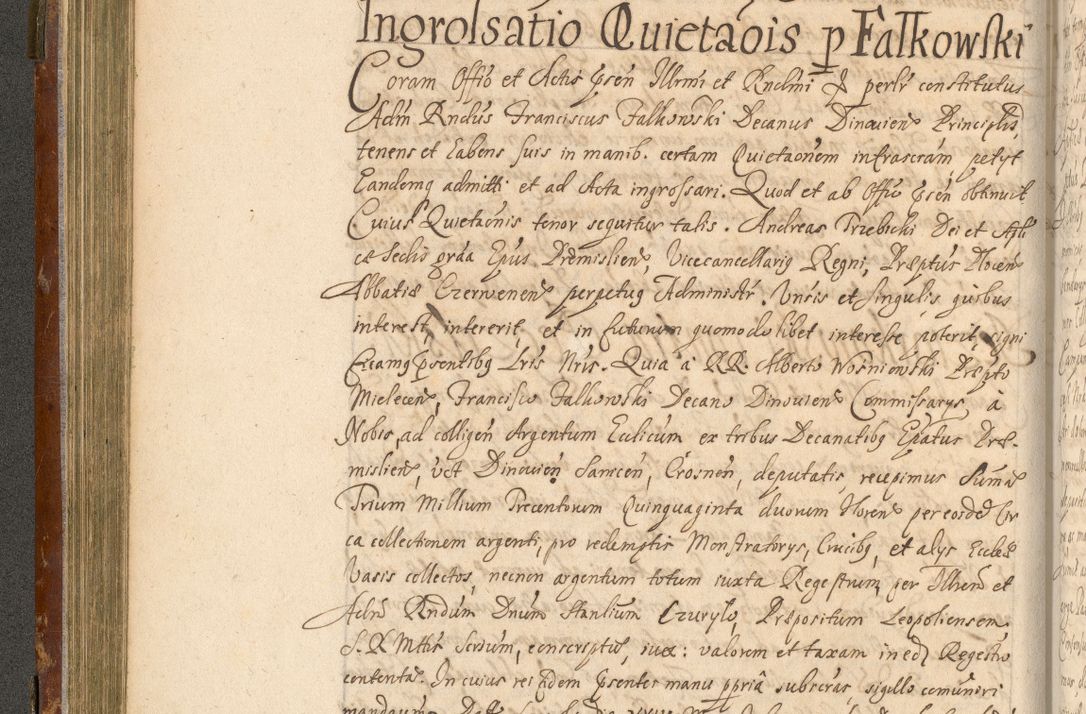 Ingrossatio Quietaōis p Falkowski
Coram Offō et Actis p̄sen Illrmi et Rndmi D perlr constitutus
Adm Rndus Franciscus Falkowski Decanus Dinouien Principlr,
tenens et habens suis in manib. certam Quietaonem infrascram, petyt
Eandemq admitti et ad Acta ingrossari. Quod et ab Offio p̄sen obtinuit
Cuius Quietaonis tenor sequitur talis. Andreas Trzebicki Dei et Apli
cæ Sedis grãa Epus Premislien, Vicecancellariq Regni, Præptus Plocen
Abbatiæ Czerwenen perpetuq Administr. Vnsis et singulis quibus
interest, intererit, et in futurum quomodolibet interesse poterit, signi
ficamq p̄sentibq Lris Nris. Quia à RR. Alberto Wosniowski Præpto
Mielecen, Francisco Falkowski Decano Dinouien Commissarys, à
Nobis ad colligen Argentum Ecclicum ex tribus Decanatibq Epatus Præ-
mislien, vct Dinouien Samcen, Crosnen, deputatis, recepimus Suma
Trium Millium Trecentorum Quinquaginta duorum Floren per eosde Cir
ca collectionem argenti, pro redemptis Monstratorys, Crucibq, et alys Eccles
Vasis collectos, necnon argentum totum iuxta Regestrum per Illrem et
Adm Rndum Dnum Stanlium Czurylo, Præpositum Leopoliensem
S. R Mttis Scrium, conscriptu, iux: valorem et taxam in ed Regestro
contenta. In cuius rei fidem p̄sentes manu ppria subscras, sigillo comuniri